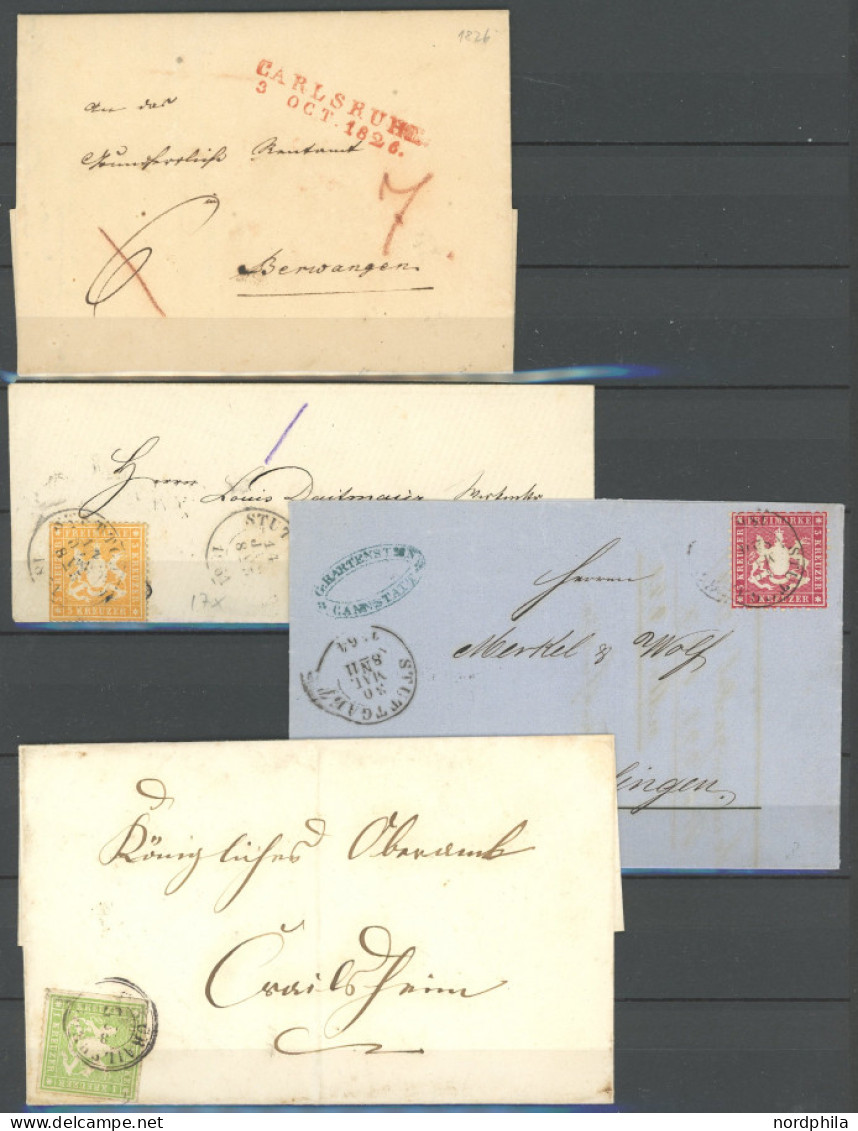 1826
CARLSRUHE
3 OCT. 1826.
An das
Grundherrliche Rentamt
6
7
Berwangen
Herrn Louis Daitmaier
STUT
17x
3 KREUZER
G. HARTENSTEIN
CANNSTATT
FREIMARKE
3 KREUZER
3 KREUZER
3 KREUZER
Herren
Merkel & Wolf
STUTTGART
30
MAI
lingen.
Königliches Oberamt
Crailsheim
CRAILSHEIM
1 KREUZER
www.delcampe.net
nordphila